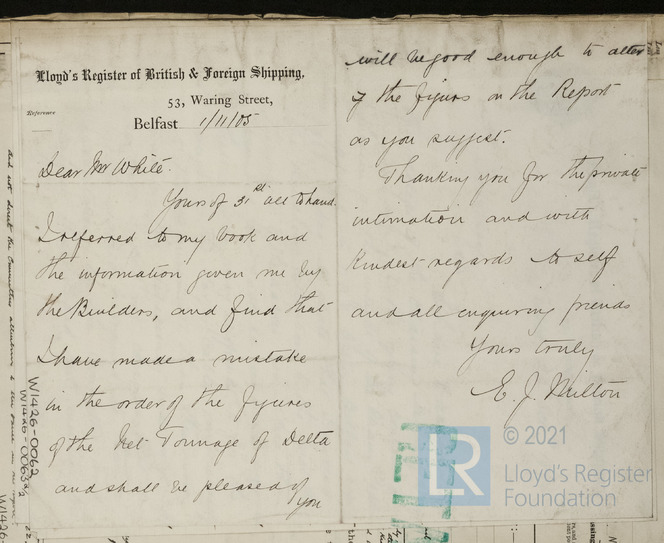 Lloyd's Register of British & Foreign Shipping,
53, Waring Street,
Reference
Belfast 1/11/05
Dear Mr White.
Yours of 31st all to hand.
I referred to my book and
the information given me by
the Builders, and find that
I have made a mistake
in the order of the figures
of the Net Tonnage of Delta
and shall be pleased if
you
will be good enough to alter
the figures on the Report
as you suggest.
Thanking you for the private
intimation and with
kindest regards to self
and all enquiring friends
Yours truly
E. J. Milton
W1426-0062
© 2021
LR
Lloyd's Register
Foundation